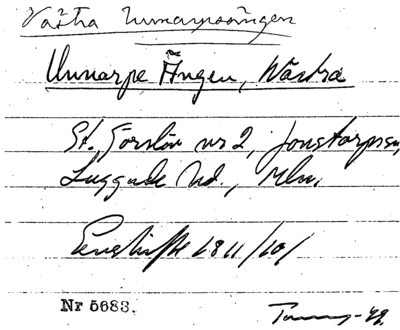 Västra Unnarpsängen
Unnarpe Ängen, Wästra
St. Görslöv nr 2, Jonstorps sn,
Luggude hd., Mlm.
Enskifte 1811/10/
Nr 5683.